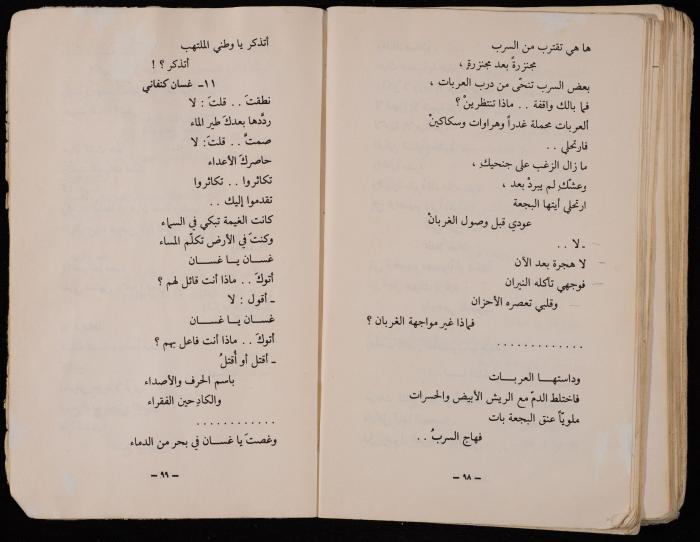 ها هي تقترب من السرب
مجنزرةً بعد مجنزرةٍ ،
بعض السرب تنحّى من درب العربات ،
فما بالك واقفة . . ماذا تنتظرينْ ؟
ألعربات محملة غدراً وهراوات وسكاكينْ
فارتحلي . .
ما زال الزغب على جنحيكِ ،
وعشكِ لم يبردْ بعد ،
ارتحلي أيتها البجعة
عودي قبل وصول الغربانْ
ـ لا . .
لا هجرة بعد الآن
فوجهي تأكله النيران
وقلبي تعصره الأحزان
فماذا غير مواجهة الغربان ؟
. . . . . . . . . . . . .
وداستهـا العربـات
فاختلط الدمّ مع الريش الأبيض والحسرات
ملويّاً عنق البجعة بات
فهاج السربُ . .
ـ ٩٨ ـ
أتذكر يا وطني الملتهب
أتذكر ؟ !
١١ـ غسان كنفاني
نطقتَ . . قلتَ : لا
ردَّدها بعدكَ طير الماء
صمتَّ . . قلتَ : لا
حاصركَ الأعداء
تكاثروا . . تكاثروا
تقدموا إليك . .
كانت الغيمة تبكي في السماء
وكنتَ في الأرض تكلّم المساء
غسـان يـا غسـان
أتوكَ . . ماذا أنت قائل لهم ؟
ـ أقول : لا
غسـان يـا غسـان
أتوكَ . . ماذا أنت فاعل بهم ؟
ـ أقتل أو أُقتلُ
باسم الحرف والأصداء
والكادحين الفقراء
. . . . . . . . . . . .
وغصتَ يا غسـان في بحر من الدماء
ـ ٩٩ ـ